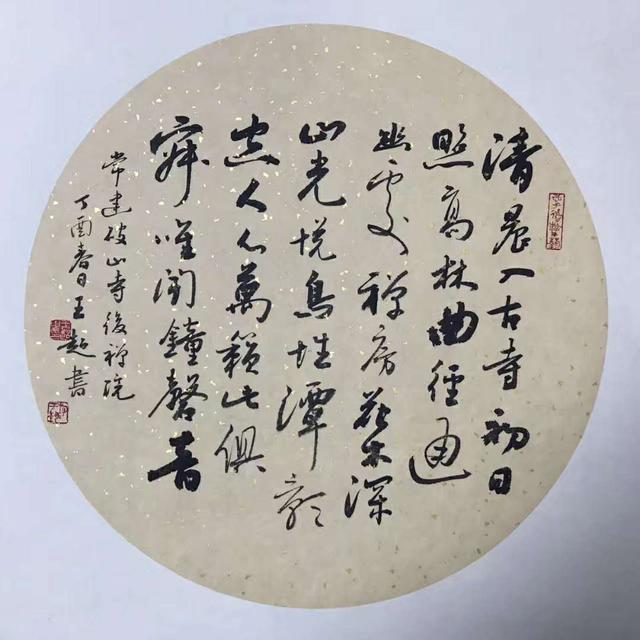 清晨入古寺初日
照高林曲径通
幽处禅房花木深
山光悦鸟性潭影
空人心万籁此俱
寂唯闻钟磬音
常建破山寺後禅院
丁酉春日王超书